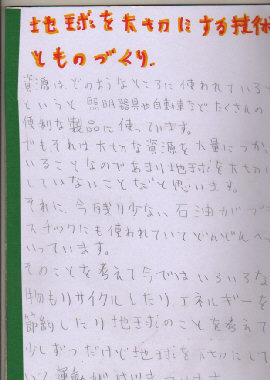 地球を大切にする技術
とものづくり.
資源は、どのようなところに使われている
というと照明器具や自動車などたくさんの
便利な製品に使っています。
でもそれは大切な資源を大量につか
いることなのであまり地球を大切に
していないことなど思います。
それに、今残り少ない石油がプラ
スチックにも使われていてどんどんへ
いっています。
そのことを考えて今ではいろいろな
物もリサイクルしたり、エネルギーを
節約したり地球のことを考えて
少しずつだけど地球を大切にして
いく運動が